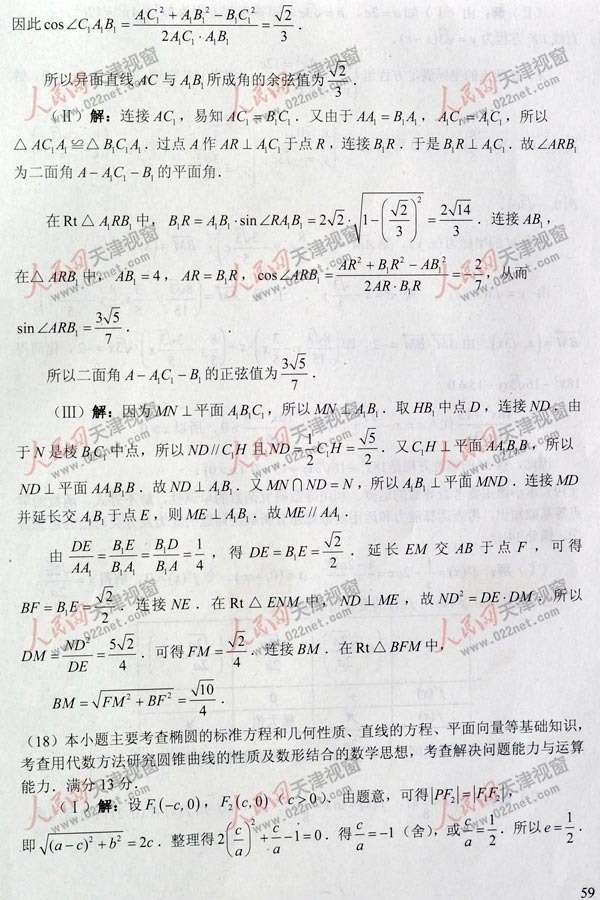 因此 cos∠C₁A₁B₁ = (A₁C₁² + A₁B₁² − B₁C₁²)/(2A₁C₁·A₁B₁) = √2/3．
所以异面直线 AC 与 A₁B₁ 所成角的余弦值为 √2/3．
（Ⅱ）解：连接 AC₁，易知 AC₁ = B₁C₁．又由于 AA₁ = B₁A₁，A₁C₁ = A₁C₁，所以
△AC₁A₁ ≌ △B₁C₁A₁．过点 A 作 AR ⊥ A₁C₁ 于点 R，连接 B₁R．于是 B₁R ⊥ A₁C₁．故∠ARB₁
为二面角 A − A₁C₁ − B₁ 的平面角．
在 Rt△A₁RB₁ 中，B₁R = A₁B₁·sin∠RA₁B₁ = 2√2·√(1−(√2/3)²) = 2√14/3．连接 AB₁，
在△ARB₁ 中，AB₁ = 4，AR = B₁R，cos∠ARB₁ = (AR² + B₁R² − AB₁²)/(2AR·B₁R) = −2/7，从而
sin∠ARB₁ = 3√5/7．
所以二面角 A − A₁C₁ − B₁ 的正弦值为 3√5/7．
（Ⅲ）解：因为 MN ⊥ 平面 A₁B₁C₁，所以 MN ⊥ A₁B₁．取 HB₁ 中点 D，连接 ND．由
于 N 是棱 B₁C₁ 中点，所以 ND // C₁H 且 ND = 1/2 C₁H = √5/2．又 C₁H ⊥ 平面 AA₁B₁B，所以
ND ⊥ 平面 AA₁B₁B．故 ND ⊥ A₁B₁．又 MN ∩ ND = N，所以 A₁B₁ ⊥ 平面 MND．连接 MD
并延长交 A₁B₁ 于点 E，则 ME ⊥ A₁B₁．故 ME // AA₁．
由 DE/AA₁ = B₁E/B₁A₁ = B₁D/B₁A = 1/4，得 DE = B₁E = √2/2．延长 EM 交 AB 于点 F，可得
BF = B₁E = √2/2．连接 NE．在 Rt△ENM 中，ND ⊥ ME，故 ND² = DE·DM．所以
DM = ND²/DE = 5√2/4．可得 FM = √2/4．连接 BM．在 Rt△BFM 中，
BM = √(FM² + BF²) = √10/4．
（18）本小题主要考查椭圆的标准方程和几何性质、直线的方程、平面向量等基础知识，
考查用代数方法研究圆锥曲线的性质及数形结合的数学思想，考查解决问题能力与运算
能力．满分 13 分．
（Ⅰ）解：设 F₁(−c, 0)，F₂(c, 0)（c > 0）．由题意，可得 |PF₂| = |F₁F₂|，
即 √((a−c)² + b²) = 2c．整理得 2(c/a)² + c/a − 1 = 0．得 c/a = −1（舍），或 c/a = 1/2．所以 e = 1/2．
59
人民网天津视窗
www.022net.com